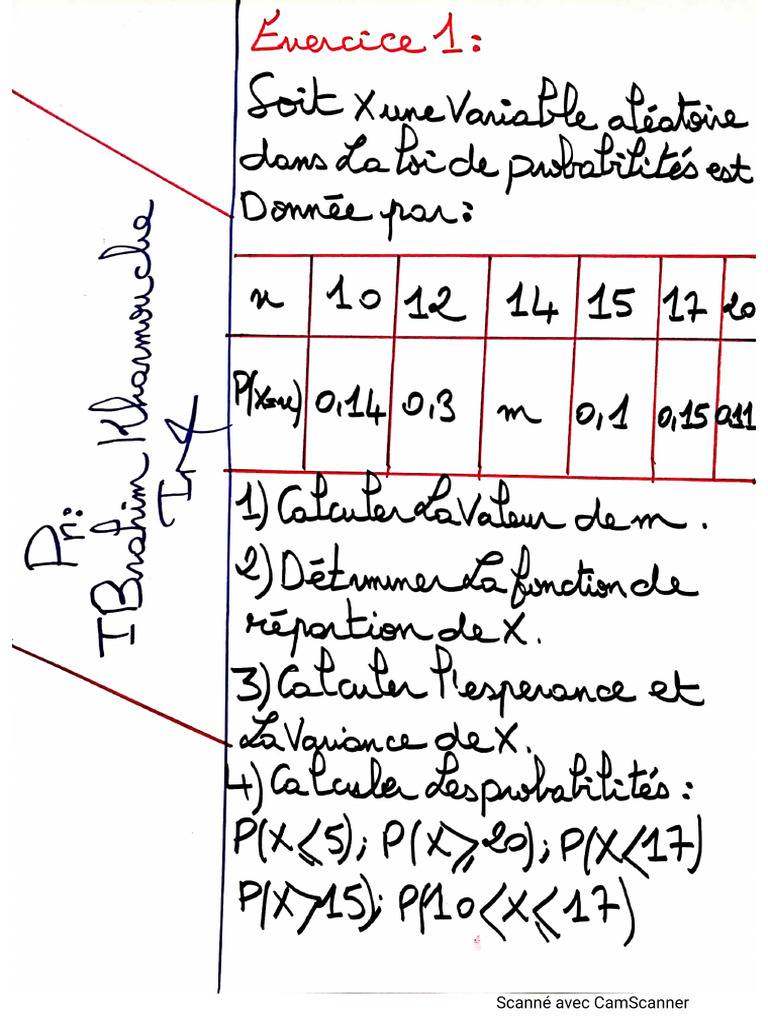 Exercice 1:
Soit X une Variable aléatoire
dans La loi de probabilités est
Donnée par:
x 10 12 14 15 17 20
P(X=x) 0,14 0,3 m 0,1 0,15 0,11
1) Calculer La Valeur de m.
2) Déterminer La fonction de
répartion de X.
3) Calculer l'esperance et
La Variance de X.
4) Calculer Les probabilités:
P(X⩽5); P(X⩾20); P(X<17)
P(X>15); P(10<X⩽17)
Pr:
IBrahim Kharmouche
Scanné avec CamScanner